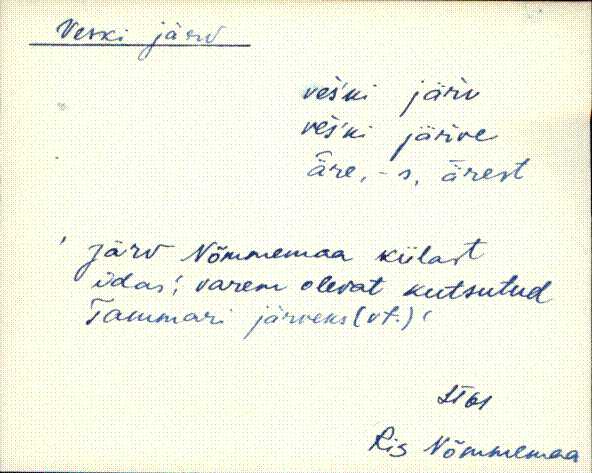 Veski järv
veś́ki järv
veś́ki järve
äre, -s, ärest
' järv Nõmmemaa külast
idas', varem olevat kutsutud
Tammari järveks (vt.) '
Ris Nõmmemaa